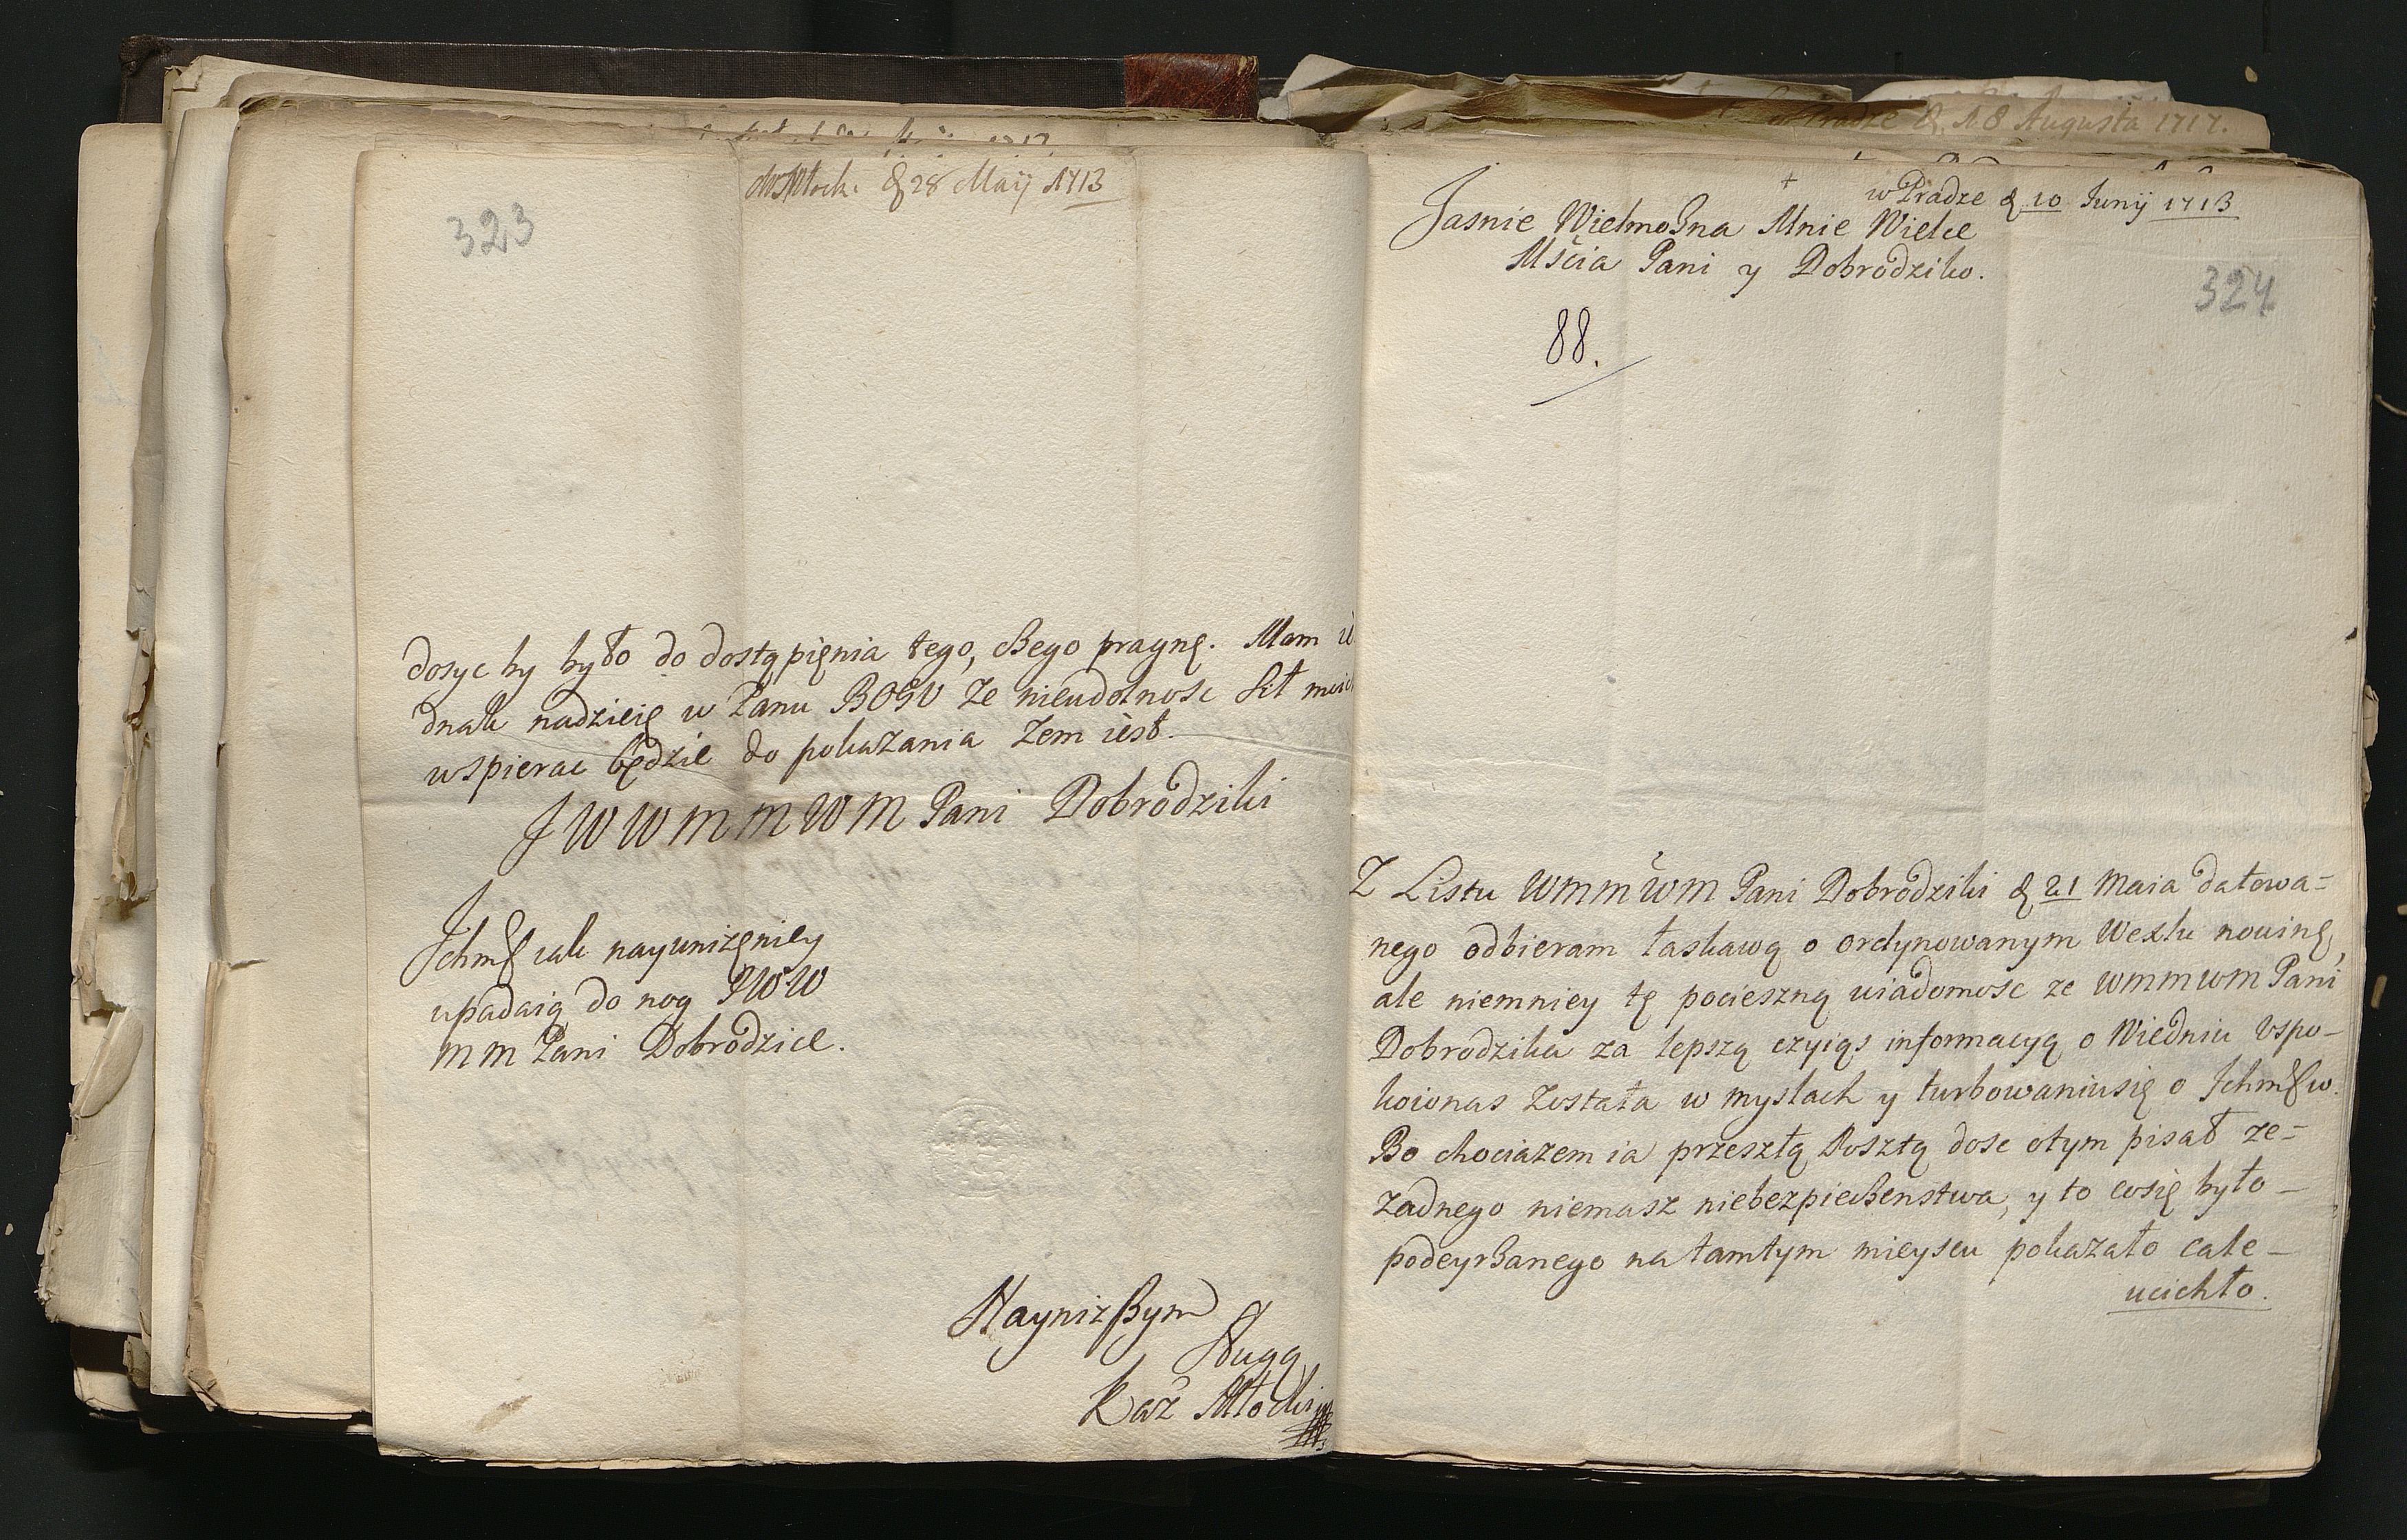 323
28 Maij 1713
dosyc by było do dostąpięnia tego, czego pragnę. Mam ie
dnak nadzieię w Panu BOGU ze nieudolnosc sił moich
wspierac będzie do pokazania zem iest.
J W W M M W M Pani Dobrodziki
Ichmść iak nayunizęniey
upadaią do nog JWW
mm Pani Dobrodzice.
Nayniższym
sługą
Kaz Młocki
w Pradze d. 18 Augusta 1717.
w Pradze d 10 Junij 1713
Jasnie Wielmożna Mnie Wielce
Mścia Pani y Dobrodziko.
324
88.
Z Listu WMMWM Pani Dobrodziki d 21 Maia datowa=
nego odbieram łaskawą o ordynowanym Wexlu nowinę,
ale niemniey tę pocieszną wiadomosc ze WMMWM Pani
Dobrodzika za lepszą czyiąs informacyą o Wiedniu Vspo-
koionas została w myslach y turbowaniusię o Ichmściow.
Bo chociazem ia przeszłą Posztą dosc otym pisał ze=
zadnego niemasz niebezpieczenstwa, y to cosię było -
podeyrzanego na tamtym mieyscu pokazało cale -
ucichło.